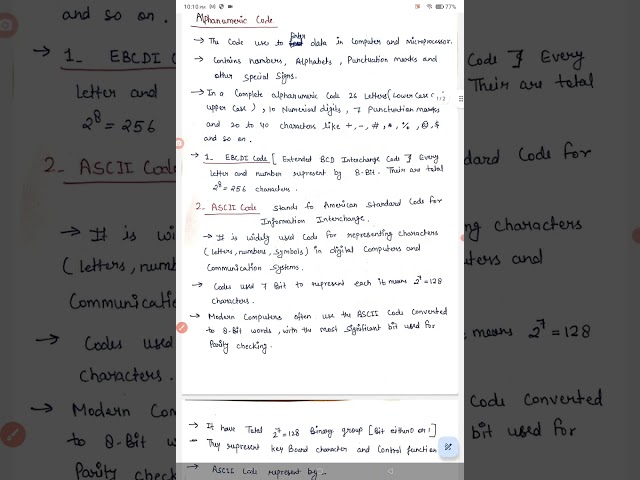 10:10 PM
77%
Alphanumeric Code
→ The Code uses to Enter data in Computer and microprocessor.
→ Contains numbers, Alphabets, Punctuation marks and
other Special Signs.
→ In a Complete alphanumeric Code 26 Letters (Lower Case
upper Case), 10 Numerical digits, 7 Punctuation marks
and 20 to 40 characters like +, -, #, *, %, @, $
and so on.
1/2
→ 1. EBCDI Code [ Extended BCD Interchange Code ] Every
Letter and number represent by 8-Bit. Their are total
2⁸ = 256 characters.
2. ASCII Code Stands fo American Standard Code for
Information Interchange.
→ It is widely used Code for representing characters
(letters, numbers, symbols) in digital Computers and
Communication Systems.
→ Codes used 7 Bit to represent each it means 2⁷ = 128
characters.
→ Modern Computers often use the ASCII Code Converted
to 8-Bit words, with the most significant bit used for
Parity checking.
→ It have Total 2⁷ = 128 Binary group [Bit either 0 or 1]
They represent key Board character and Control function
→ ASCII Code represent by
and so on.
→ 1. EBCDI
Letter and
2⁸ = 256
2. ASCII Code
→ It is wi
(letters, numb
Communicatio
→ Codes used
characters.
→ Modern Com
to 8-Bit
Parity check
Code ] Every
Their are total
dard Code for
ng characters
ters and
means 2⁷ = 128
Code converted
bit used for